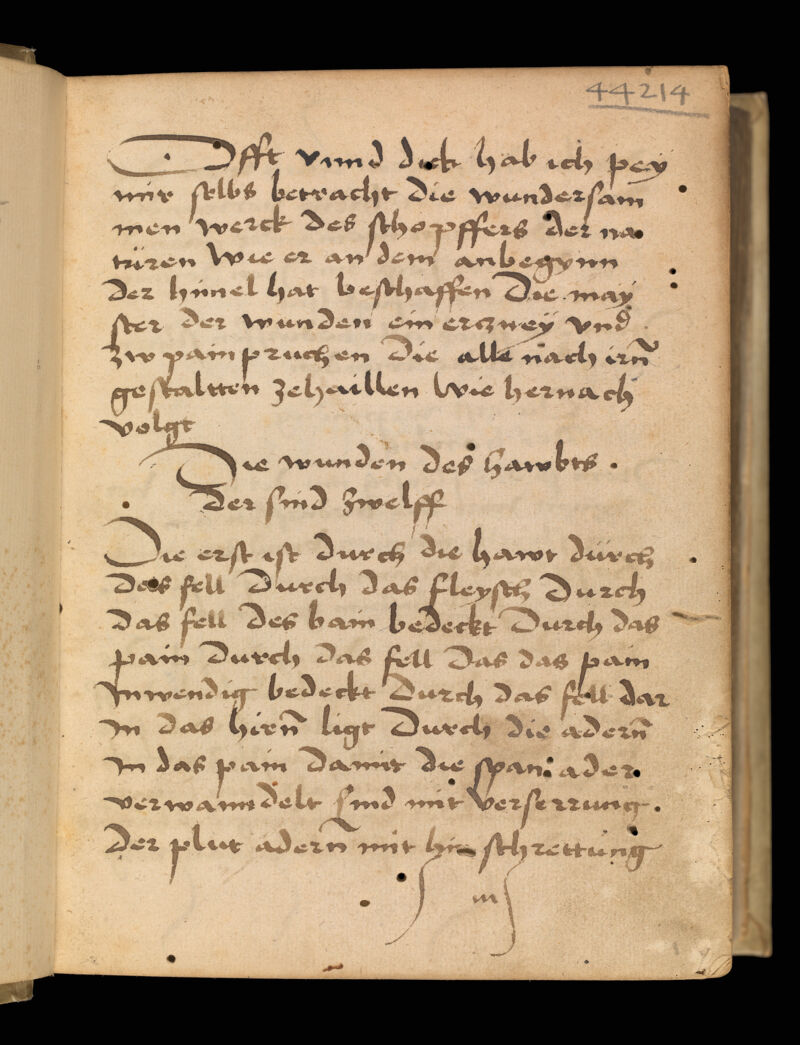 44214
Offt vnnd dick hab ich pey
mir selbs betracht die wundersam
men werck des schopffers der na
türen wie er an dem anbegynn
der himel hat beschaffen Die may
ster der wunden ein erczney vnd
zw painpruchen die alle nach irñ
gestaltten zehaillen wie hernach
volgt
Die wunden des hawbts.
der sind zwelff
Die erst ist durch die hawt dürch
das fell durch das fleysch durch
das fell des bain bedeckt durch das
pain durch das fell das das pain
Inwendig bedeckt durch das fell dar
In das hirñ ligt durch die aderñ
In das pain damit die span ader
verwanndelt sind mit verserrung.
der plut aderñ mit hin schrettung
in